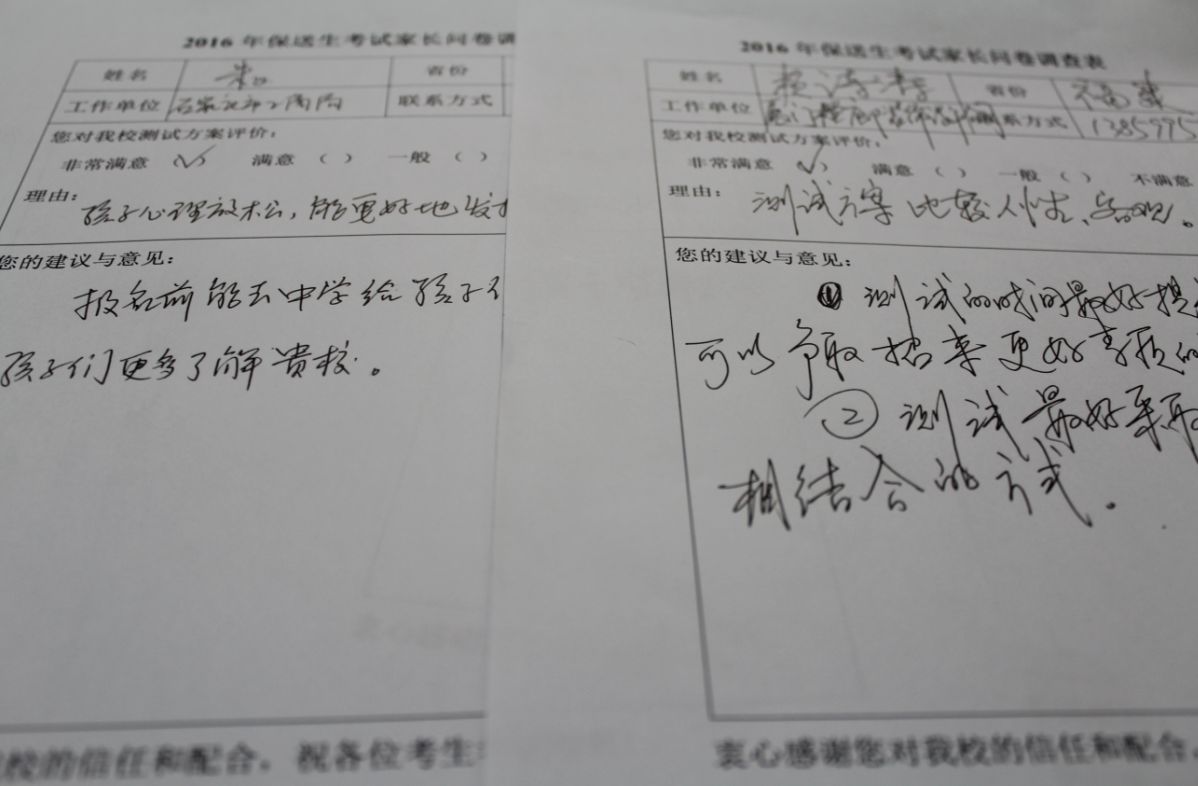 2016年保送生考试家长问卷调
姓名
省份
工作单位
联系方式
您对我校测试方案评价:
非常满意 (✓) 满意 ( ) 一般 ( )
理由: 孩子心理放松, 能更好地发挥
您的建议与意见:
报名前能去中学给孩子
孩子们更多了解贵校。
校的信任和配合, 祝各位考生
2016年保送生考试家长问卷调查表
姓名
省份
工作单位
联系方式 1385995
您对我校测试方案评价:
非常满意 (✓) 满意 ( ) 一般 ( ) 不满意
理由: 测试方案比较人性、客观。
您的建议与意见:
① 测试的时间最好提
可以争取招来更好素质的
② 测试最好采取
相结合的方式.
衷心感谢您对我校的信任和配合,